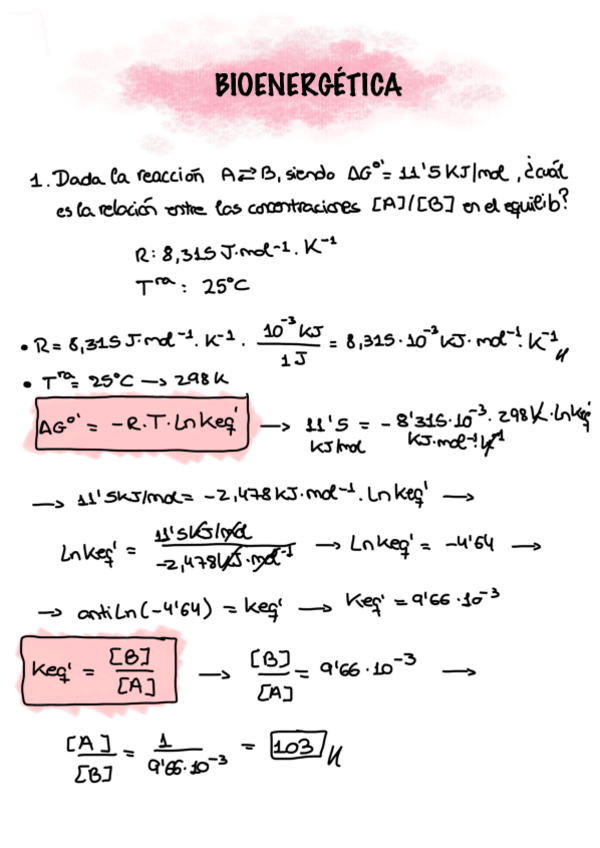 BIOENERGÉTICA
1. Dada la reacción A⇄B, siendo ΔG°'= 11'5 KJ/mol, ¿cuál
es la relación entre las concentraciones [A]/[B] en el equilib?
R: 8,315 J·mol-1. K-1
Tra: 25°C
• R= 8,315 J·mol-1. K-1. 10-3 KJ / 1J = 8,315·10-3 KJ·mol-1. K-1//
• Tra= 25°C → 298K
ΔG°' = -R.T.Ln Keq' → 11'5 KJ/mol = -8'315·10-3 KJ·mol-1·K-1. 298K·LnKeq'
→ 11'5KJ/mol= -2,478KJ·mol-1. LnKeq' →
LnKeq' = 11'5KJ/mol / -2,478KJ·mol-1 → LnKeq' = -4'64 →
→ antiLn(-4'64) = Keq' → Keq' = 9'66·10-3
Keq' = [B] / [A] → [B] / [A] = 9'66·10-3 →
[A] / [B] = 1 / 9'66·10-3 = 103//